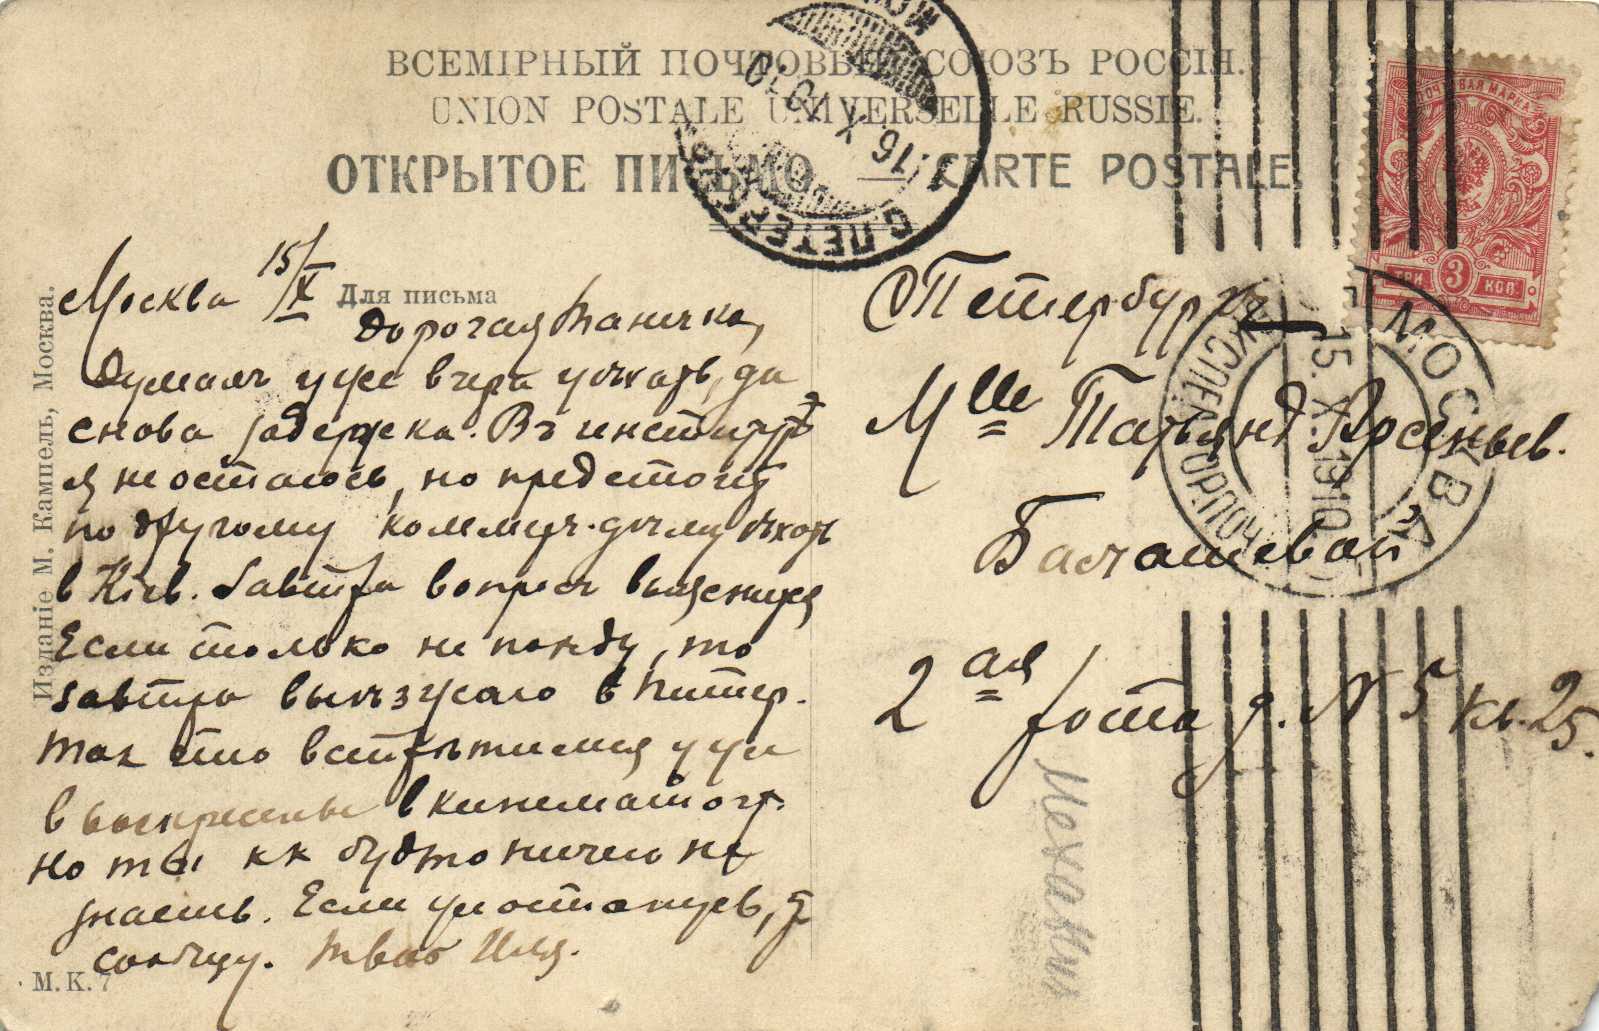 ВСЕМІРНЫЙ ПОЧТОВЫЙ СОЮЗЪ РОССІЯ.
UNION POSTALE UNIVERSELLE RUSSIE.
ОТКРЫТОЕ ПИСЬМО — CARTE POSTALE
С. ПЕТЕРБУРГ
16 X 10
ПОЧТОВАЯ МАРКА
ТРИ 3 КОП.
МОСКВА
15.X.1910
Для письма
Издание М. Кампель, Москва.
Москва 15/X
Дорогая Танечка,
думалъ уже вчера уѣхать, да
снова задержка. Въ институтѣ
я не остаюсь, но предстоитъ
по другому коммерч. дѣлу ѣхать
в Кіев. Завтра вопросъ выяснится
Если только не поѣду, то
завтра выѣзжаю в Питер.
Так что встрѣтимся уже
в воскресенье в кинематогр.
Но ты кк будто ничего не
знаешь. Если же останусь, то
сообщу. Твой Илья.
СПетербургъ
Mlle Татьянѣ Арсеньев.
Балашевой
2ая рота д. № 5 кв. 25.
М. К. 7